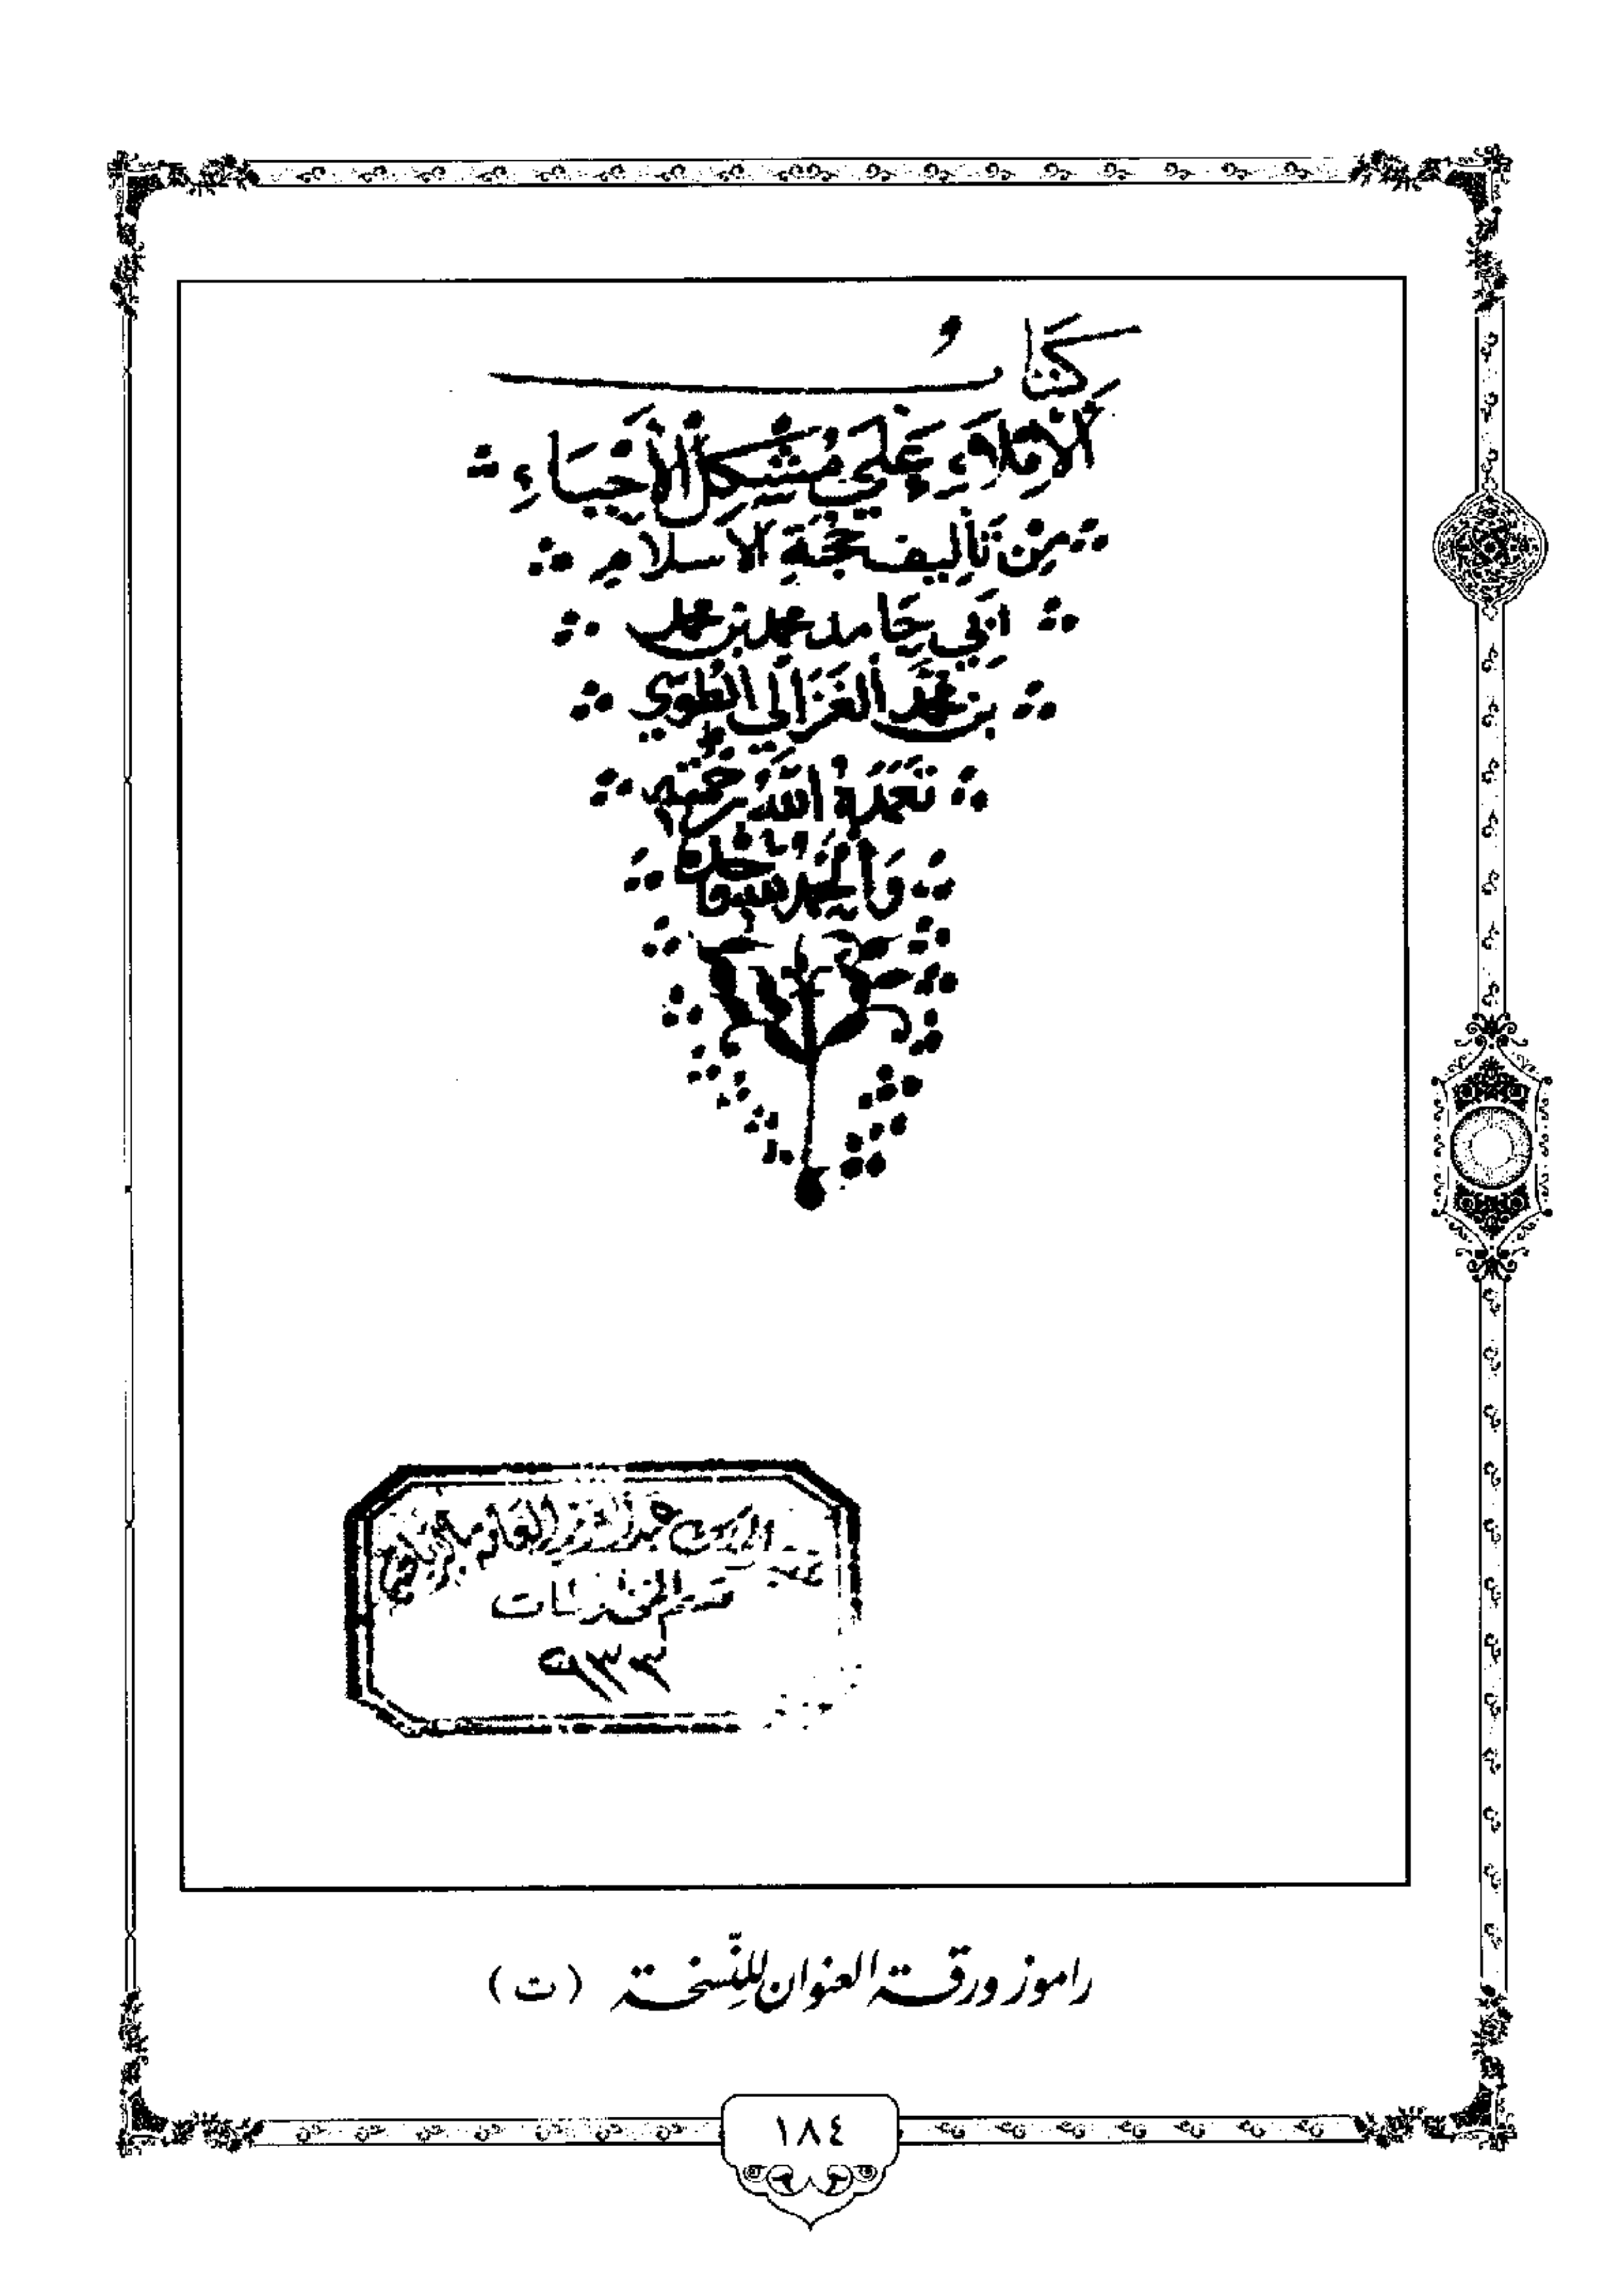 كِتَابُ
الْإِمْلَاءِ عَلَى مُشْكِلِ الْأَحْيَاءِ
مِنْ تَأْلِيفِ حُجَّةِ الاسلام
ابي حَامد محمد بن محمد
بن مُحَمَّد الغَزَالي الطوسي
تَغَمَّدَهُ اللهُ برحمته
وَالحمد لله
قسم المخطوطات
٩٣٣
راموز ورقة العنوان للنّسخة (ت)
١٨٤